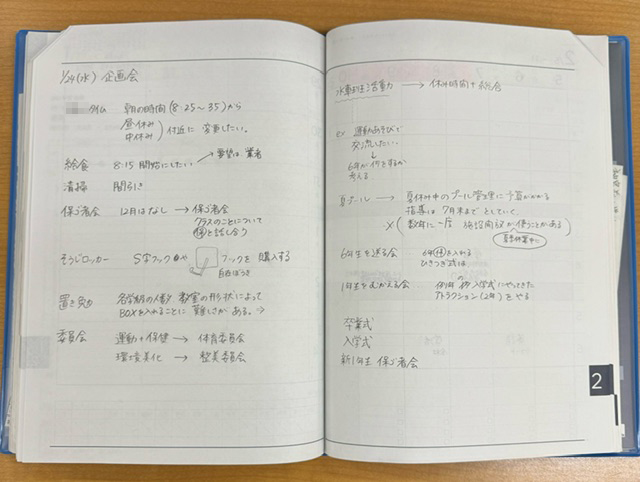 1/24(水) 企画会
タイム 朝の時間(8:25〜35)から
昼休み
中休み
付近に変更したい。
給食 8:15 開始にしたい → 要望は業者
清掃 間引き
保ゴ者会 12月はなし → 保ゴ者会
クラスのことについて
保と話し合う
そうじロッカー S字フック フックを購入する
自在ぼうき
置き勉 各学級の人数 教室の形状によって
BOXを入れることに難しさがある。⇒
委員会 運動+保健 → 体育委員会
環境美化 → 整美委員会
→ 休み時間+
ex 運動あそびで
交流したい…
↓
6年が何をするか
考える
夏プール → 夏休み中のプール管理に予算がかかる
指導は7月末までとしていく
×(数年に一度 施設開放が使うことがある)
夏季休業中に
6年生を送る会 6年 体を入れる
ひきつぎ式は
1年生をむかえる会 例年の入学式にやってきた
アトラクション(2年)をやる
卒業式
入学式
新1年生 保ゴ者会
2